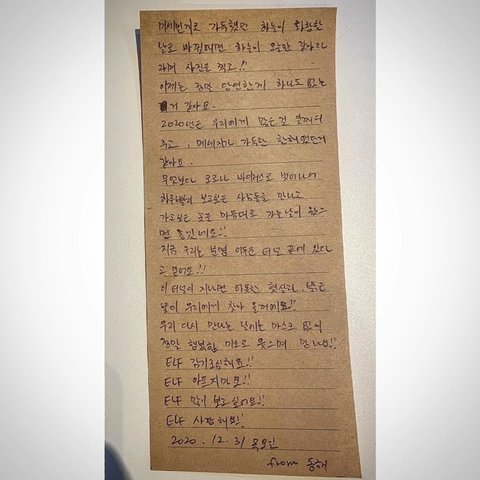 미세먼지로 가득했던 하늘이 화창한
날로 바뀔때면 하늘이 오늘만 같아라
라며 사진을 찍고!!
이제는 정말 당연한게 하나도 없는
게 같아요.
2020년은 우리에게 많은걸 알려
주고, 메세지가 가득한 한해였던거
같아요.
무엇보다 코로나 바이러스로 벗어나서
하루빨리 보고싶은 사람들을 만나고
가고싶은 곳을 마음대로 가는날이 왔으
면 좋겠네요!!
지금 우리는 분명 어두운 터널 끝에 있다
고 믿어요!!
이 터널이 지나면 따뜻한 햇살과, 밝은
빛이 우리에게 찾아 올꺼에요!!
우리 다시 만나는 날에는 마스크 없이
정말 행복한 미소로 웃으며 만나요!!
ELF 감기조심해요!!
ELF 아프지마요!!
ELF 많이 보고싶어요!!
ELF 사랑해요!!
2020. 12. 31 목요일
from 동해